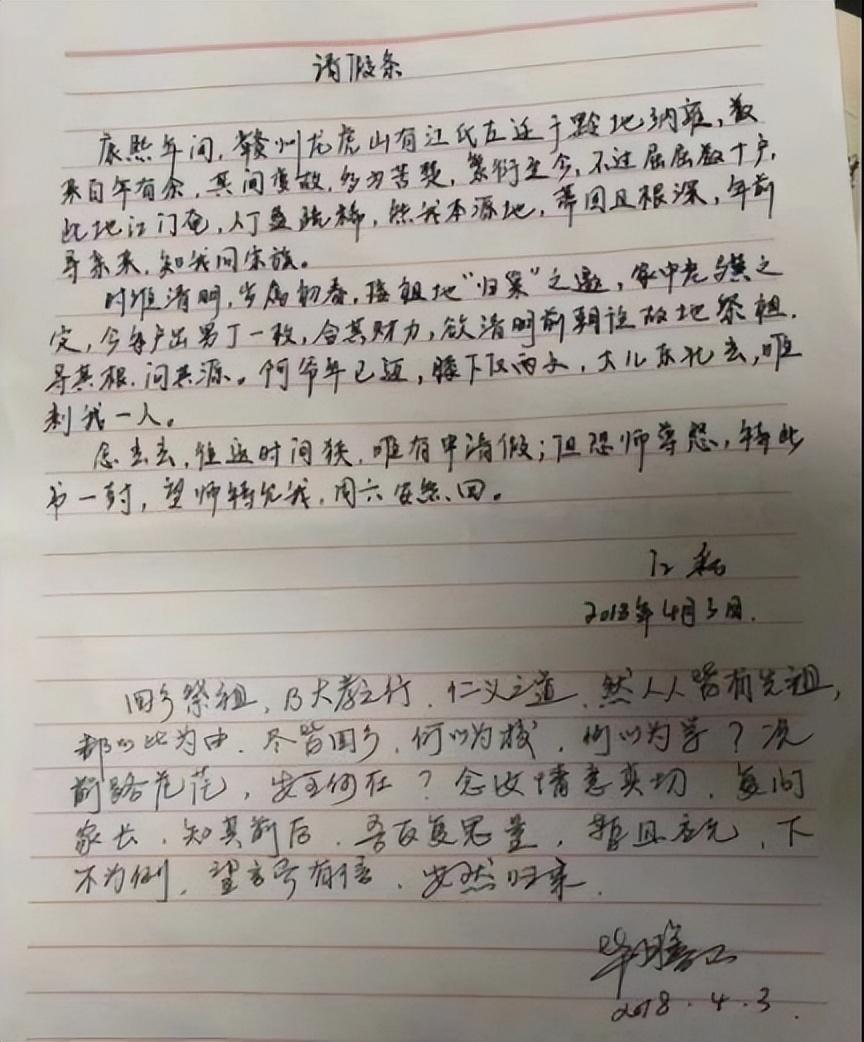 请假条
康熙年间，赣州龙虎山有江氏左迁于黔地纳雍，数
来百年有余，其间变故，多为苦楚，繁衍至今，不过屈屈数十户，
此地江门奄，人丁益疏稀，然我本源地，蒂固且根深，年前
寻亲来，知我同宗族。
时维清明，岁属初春，接祖地“归家”之邀，家中老
定，今每户出男丁一枚，合其财力，欲清明前朝谊故地祭祖.
寻其根.问其源。何爷年已迈，膝下仅两子，大儿东北去，唯
剩我一人。
念去去，往返时间狭，唯有申请假；但恐师尊怒，特此
书一封，望师特允我，周六安然回。
江
2018年4月3日.
回乡祭祖，乃大孝之行.仁义之道.然人人皆有先祖，
都以此为由.尽皆回乡.何以为校.何以为学？况
前路茫茫，安全何在？念汝情意真切.复问
家长.知其前后.吾反复思量，暂且应允，下
不为例.望言号有信.安然归来.
2018.4.3.